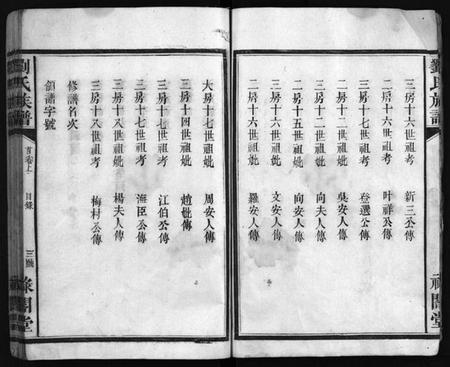 劉氏族譜
三房十六世祖考 新三公傳
二房十六世祖考 叶祥公傳
三房十七世祖考 登選公傳
二房十二世祖妣 吳安人傳
二房十四世祖妣 向夫人傳
二房十五世祖妣 向安人傳
二房十六世祖妣 文安人傳
二房十六世祖妣 羅安人傳
大房十七世祖妣 周安人傳
三房十四世祖妣 趙妣傳
三房十七世祖考 江伯公傳
三房十七世祖考 海臣公傳
三房十八世祖妣 楊夫人傳
三房十八世祖考 梅村公傳
修譜名次
領譜字號
劉氏族譜
首卷上
目錄
三
祿閣堂
祿閣堂